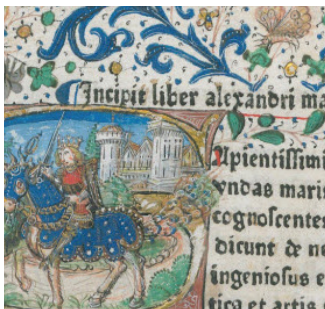 Incipit liber alexandri ma
Apientissimi
vndas maris
cognoscentes
dicunt & ne
ingeniosus e
tica et artis